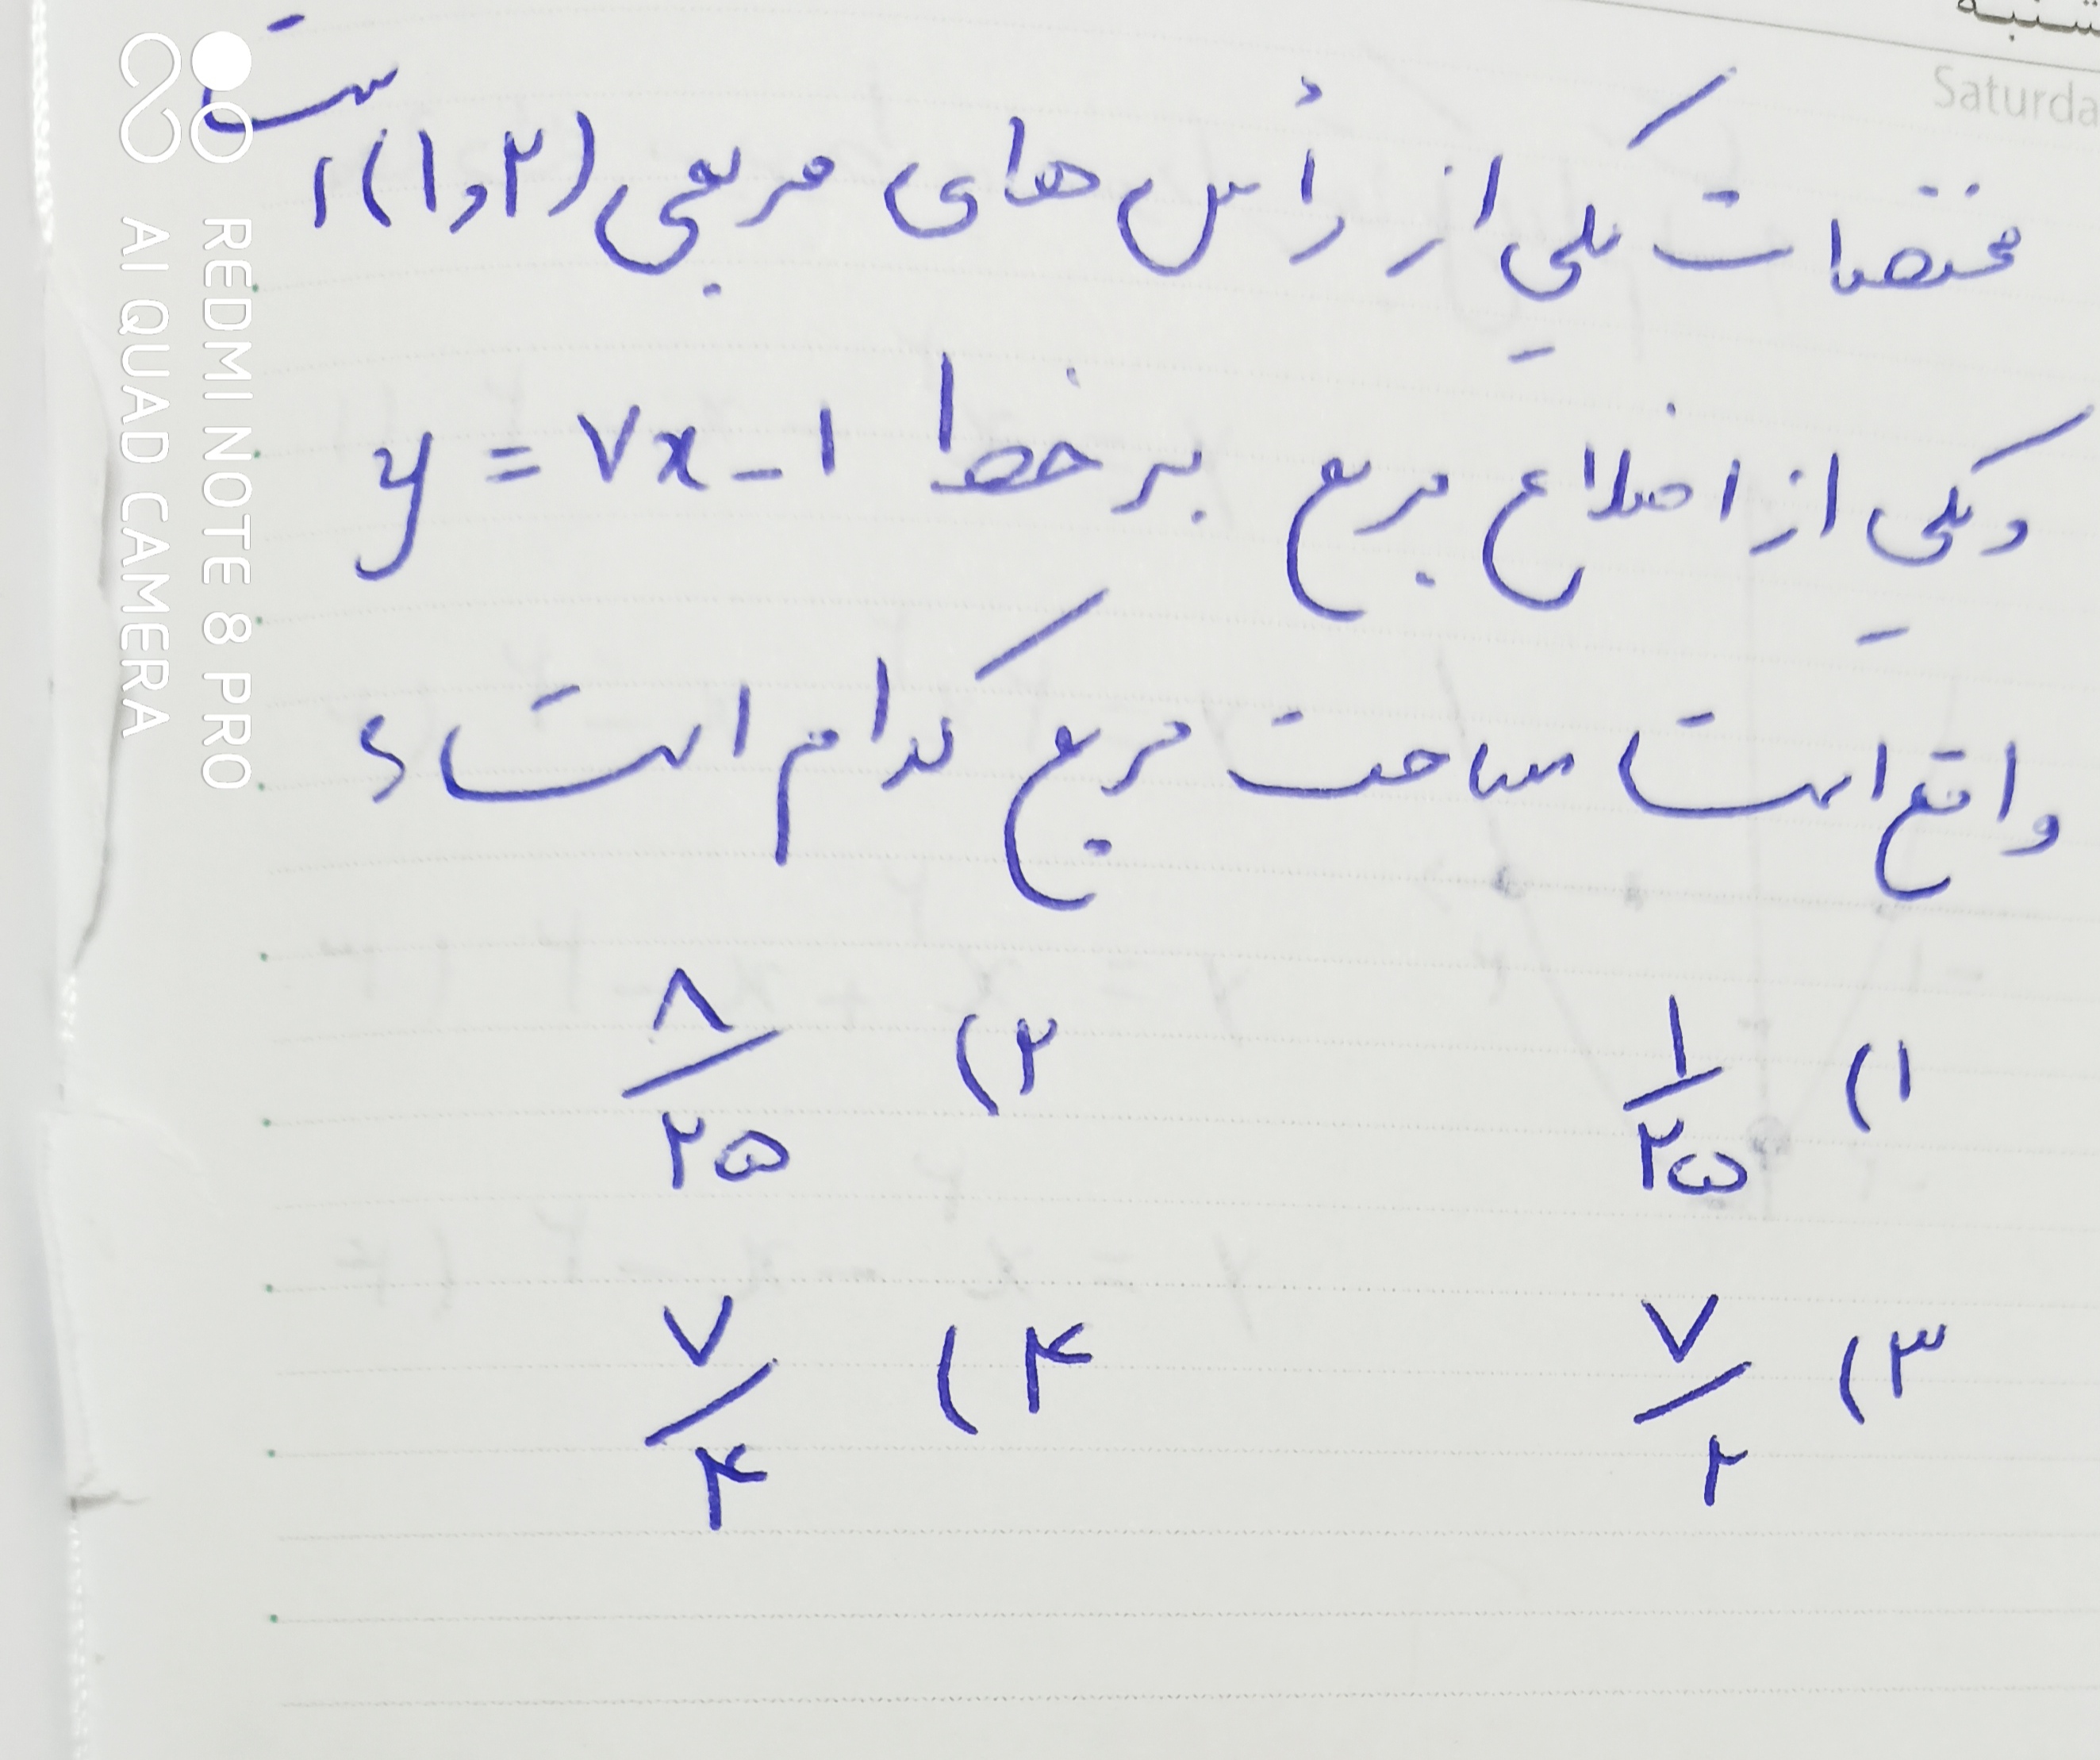 شنبه
Saturda
مختصات یکی از رأس های مربعی (۲و۱) است
و یکی از اضلاع مربع بر خط y = ۷x - ۱
واقع است مساحت مربع کدام است؟
۱) ۱/۲۵ ۲) ۸/۲۵
۳) ۷/۲ ۴) ۷/۴
REDMI NOTE 8 PRO
AI QUAD CAMERA